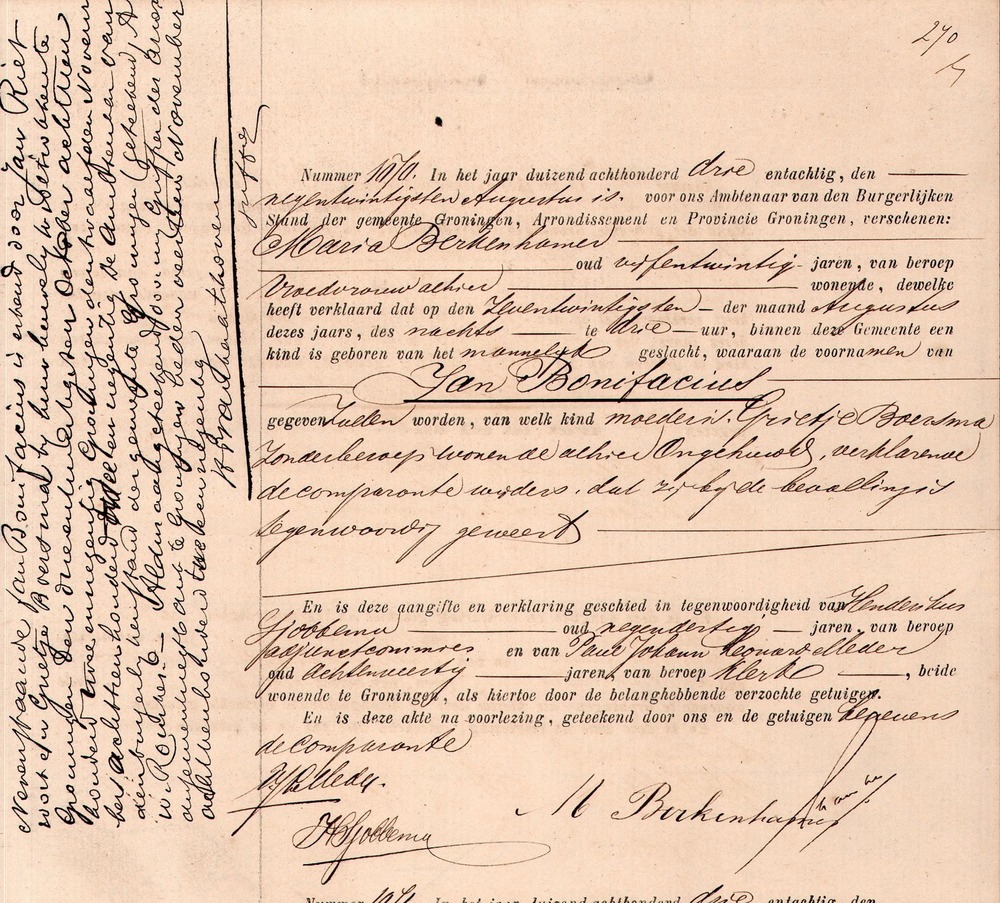 270
Nummer 1070. In het jaar duizend achthonderd drie entachtig, den
negentwintigsten Augustus is. voor ons Ambtenaar van den Burgerlijken
Stand der gemeente Groningen, Arrondissement en Provincie Groningen, verschenen:
Maria Berkenhamer
oud vijfentwintig jaren, van beroep
Vroedvrouw alhier wonende, dewelke
heeft verklaard dat op den Zeventwintigsten der maand Augustus
dezes jaars, des nachts te drie uur, binnen deze Gemeente een
kind is geboren van het mannelijk geslacht, waaraan de voornamen van
Jan Bonifacius
gegeven zullen worden, van welk kind moeder is. Grietje Boersma
Zonder beroep wonende alhier Ongehuwd, verklarende
de comparante wijders, dat zij bij de bevalling is
tegenwoordig geweest
En is deze aangifte en verklaring geschied in tegenwoordigheid van Henderikus
Sjobbema oud negendertig jaren, van beroep
adjunctcommies en van Paul Johann Leonard Meder
oud achtenveertig jaren, van beroep klerk, beide
wonende te Groningen, als hiertoe door de belanghebbende verzochte getuigen.
En is deze akte na voorlezing, geteekend door ons en de getuigen benevens
de comparante
PJLMeder.
HSjobbema
M Berkenhamer
Nevenstaande Jan Bonifacius is erkend door Jan Riet
vorst en Grietje Boersma bij hun huwelijk voltrokken te
Groningen den drieentwintigsten October achttien
honderd twee en negentig. Groningen den twaalfden Novem
ber achttienhonderd twee en negentig. De Ambtenaar van
den burgerlijken stand der gemeente Groningen (geteekend) A
Voor mij Griffier der Arron
dissementsrechtbank te Groningen heden veertien November
achttienhonderd twee en negentig
Nummer 1071. In het jaar duizend achthonderd drie entachtig, den